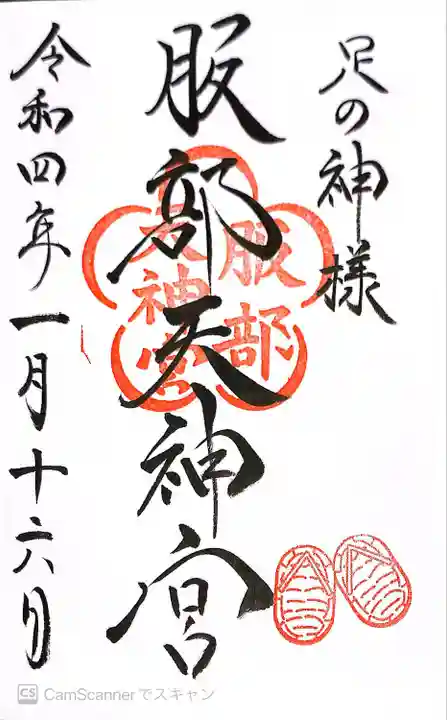 足の神様
服部天神宮
服部
天神宮
令和四年一月十六日
CS CamScannerでスキャン